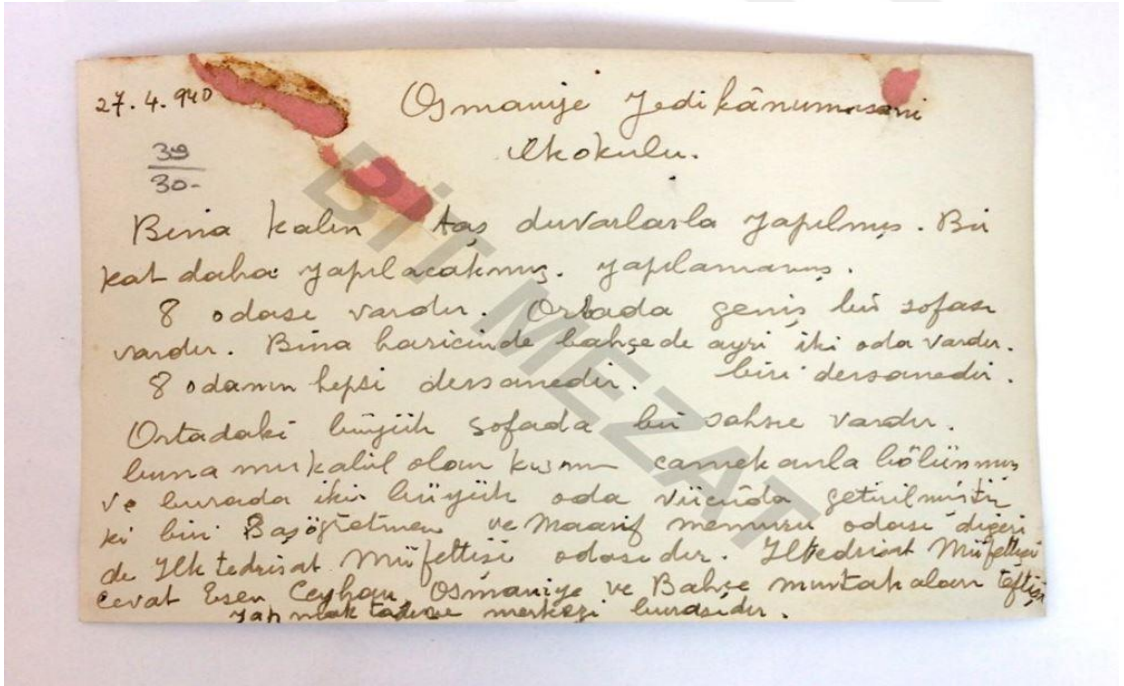 27.4.940
Osmaniye Yedikânunusani
İlkokulu.
39
30-
Bina kalın taş duvarlarla yapılmış. Bir
kat daha yapılacakmış. yapılamamış.
8 odası vardır. Ortada geniş bir sofası
vardır. Bina haricinde bahçede ayrı iki oda vardır.
8 odanın hepsi dersanedir. biri dersanedir.
Ortadaki büyük sofada bir sahne vardır.
buna mukabil olan kısım camekanla bölünmüş
ve burada iki büyük oda vücuda getirilmiştir
ki biri Başöğretmen ve Maarif memuru odası diğeri
de İlk tedrisat Müfettişi odasıdır. İlktedrisat Müfettişi
Cevat Esen Ceyhan, Osmaniye ve Bahçe mıntakaları teftiş
yapmakta merkezi burasıdır.
BİT MEZAT